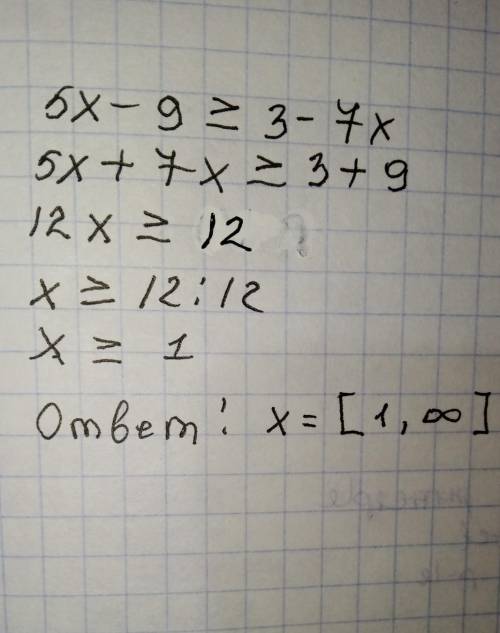 5x - 9 ≥ 3 - 7x
5x + 7x ≥ 3 + 9
12x ≥ 12
x ≥ 12 : 12
x ≥ 1
Ответ: x = [1, ∞]